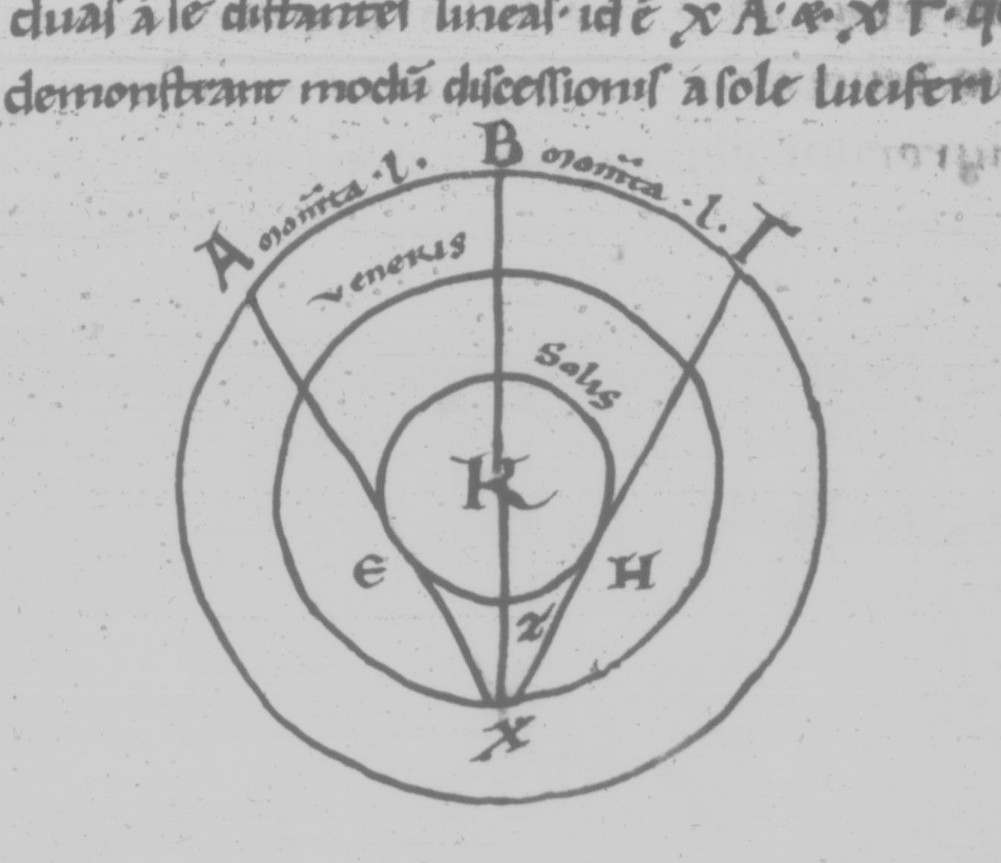 duas a se distantes lineas · id ē X A · & · X Γ · q
demonstrant modū discessionis a sole luciferi
B
A mom̄ta · l · mom̄ta · l · Γ
veneris
Solis
K
E H
Z
X